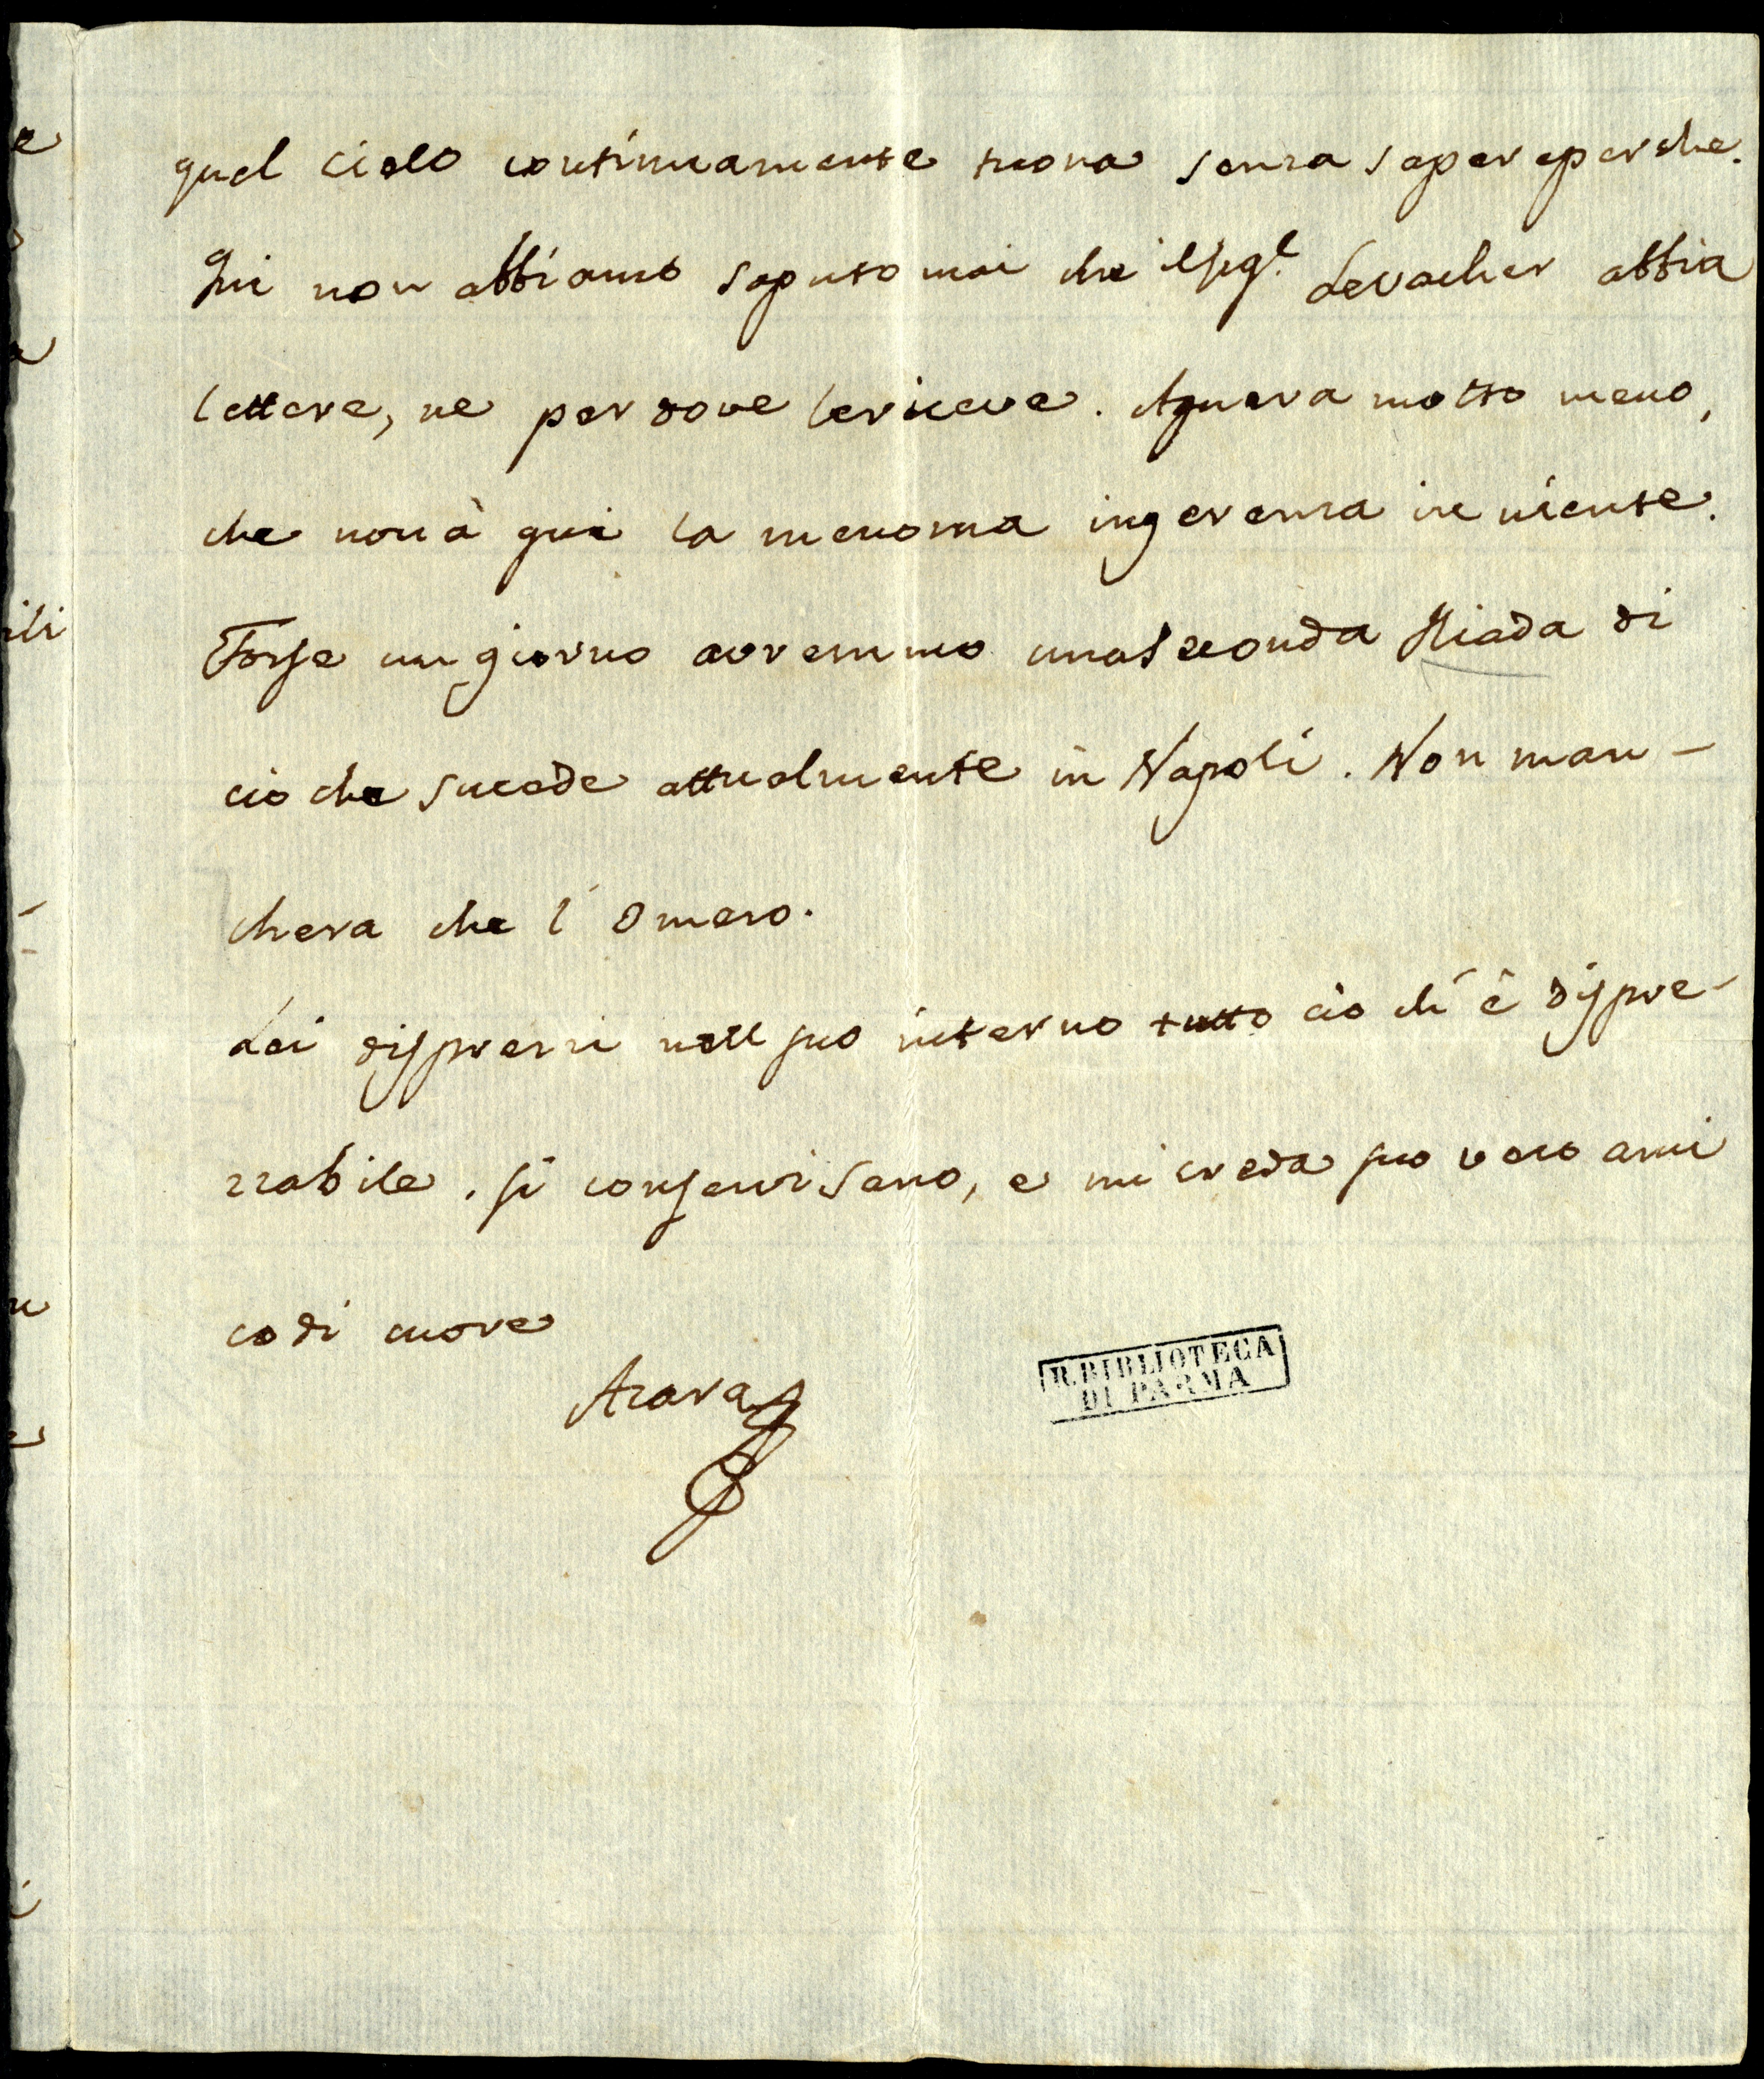 quel cielo continuamente tuona senza sapere perche.
Qui non abbiamo saputo mai che il Sig.r Levacher abbia
lettere, ne per dove le riceve. Aguera molto meno,
che non à qui la menoma ingerenza in niente.
Forse un giorno avremmo una seconda Iliada di
ciò che sucede attualmente in Napoli. Non man-
chera che l'Omero.
Lei disprezzi nell suo interno tutto ciò ch'è dispre-
zzabile. Si conservi sano, e mi creda suo vero ami
co di cuore
Azara
R. BIBLIOTECA
DI PARMA